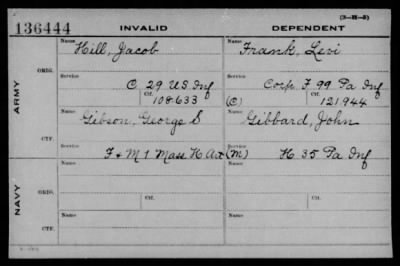 (3-H-5)
136444 INVALID DEPENDENT
Name Name
Hill, Jacob Frank, Levi
ARMY
ORIG.
Service Service
C 29 US Inf Corp. F 99 Pa Inf
Ctf. Ctf.
108633 (C) 121944
Name Name
Gibson, George S Gibbard, John
CTF.
F & M 1 Mass H Art (M) H 35 Pa Inf
NAVY
Name Ctf. Name Ctf.
ORIG.
Service Service
Name Name
CTF.